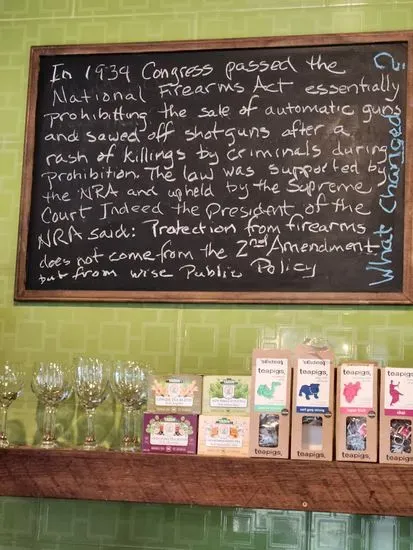 In 1934 Congress passed the
National Firearms Act essentially
prohibitting the sale of automatic guns
and sawed off shotguns after a
rash of killings by criminals during
prohibition. The law was supported by
the NRA and upheld by the Supreme
Court Indeed the President of the
NRA said: Protection from firearms
does not come from the 2nd Amendment
but from wise Public Policy
What Changed?
teapigs.
teapigs.
teapigs.
teapigs.
chai
teapigs.
teapigs.
teapigs.
teapigs.